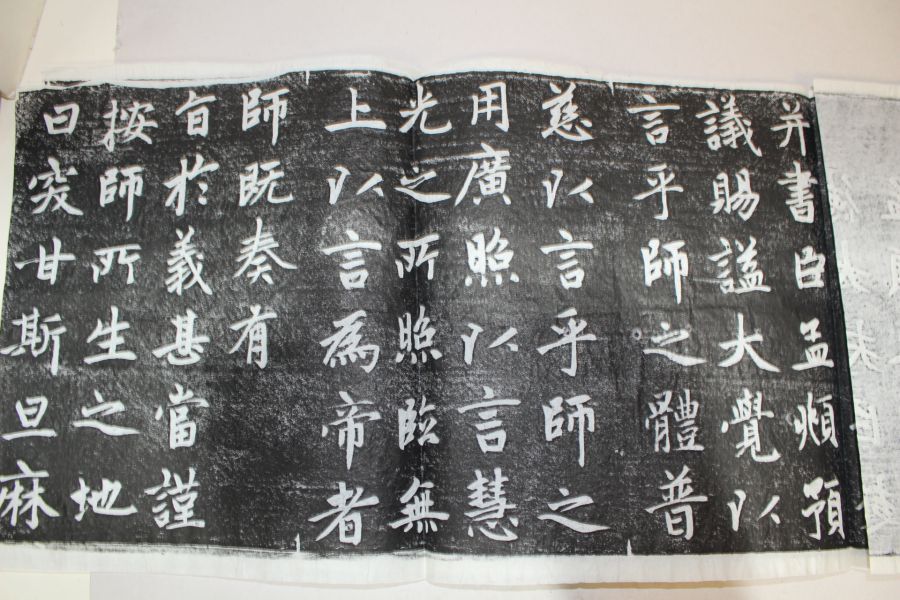 并書臣孟頫預
議賜謚大覺以
言乎師之體普
慈以言乎師之
用廣照以言慧
光之所照臨無
上以言為帝者
師既奏有
旨於義甚當謹
按師所生之地
曰突甘斯旦麻